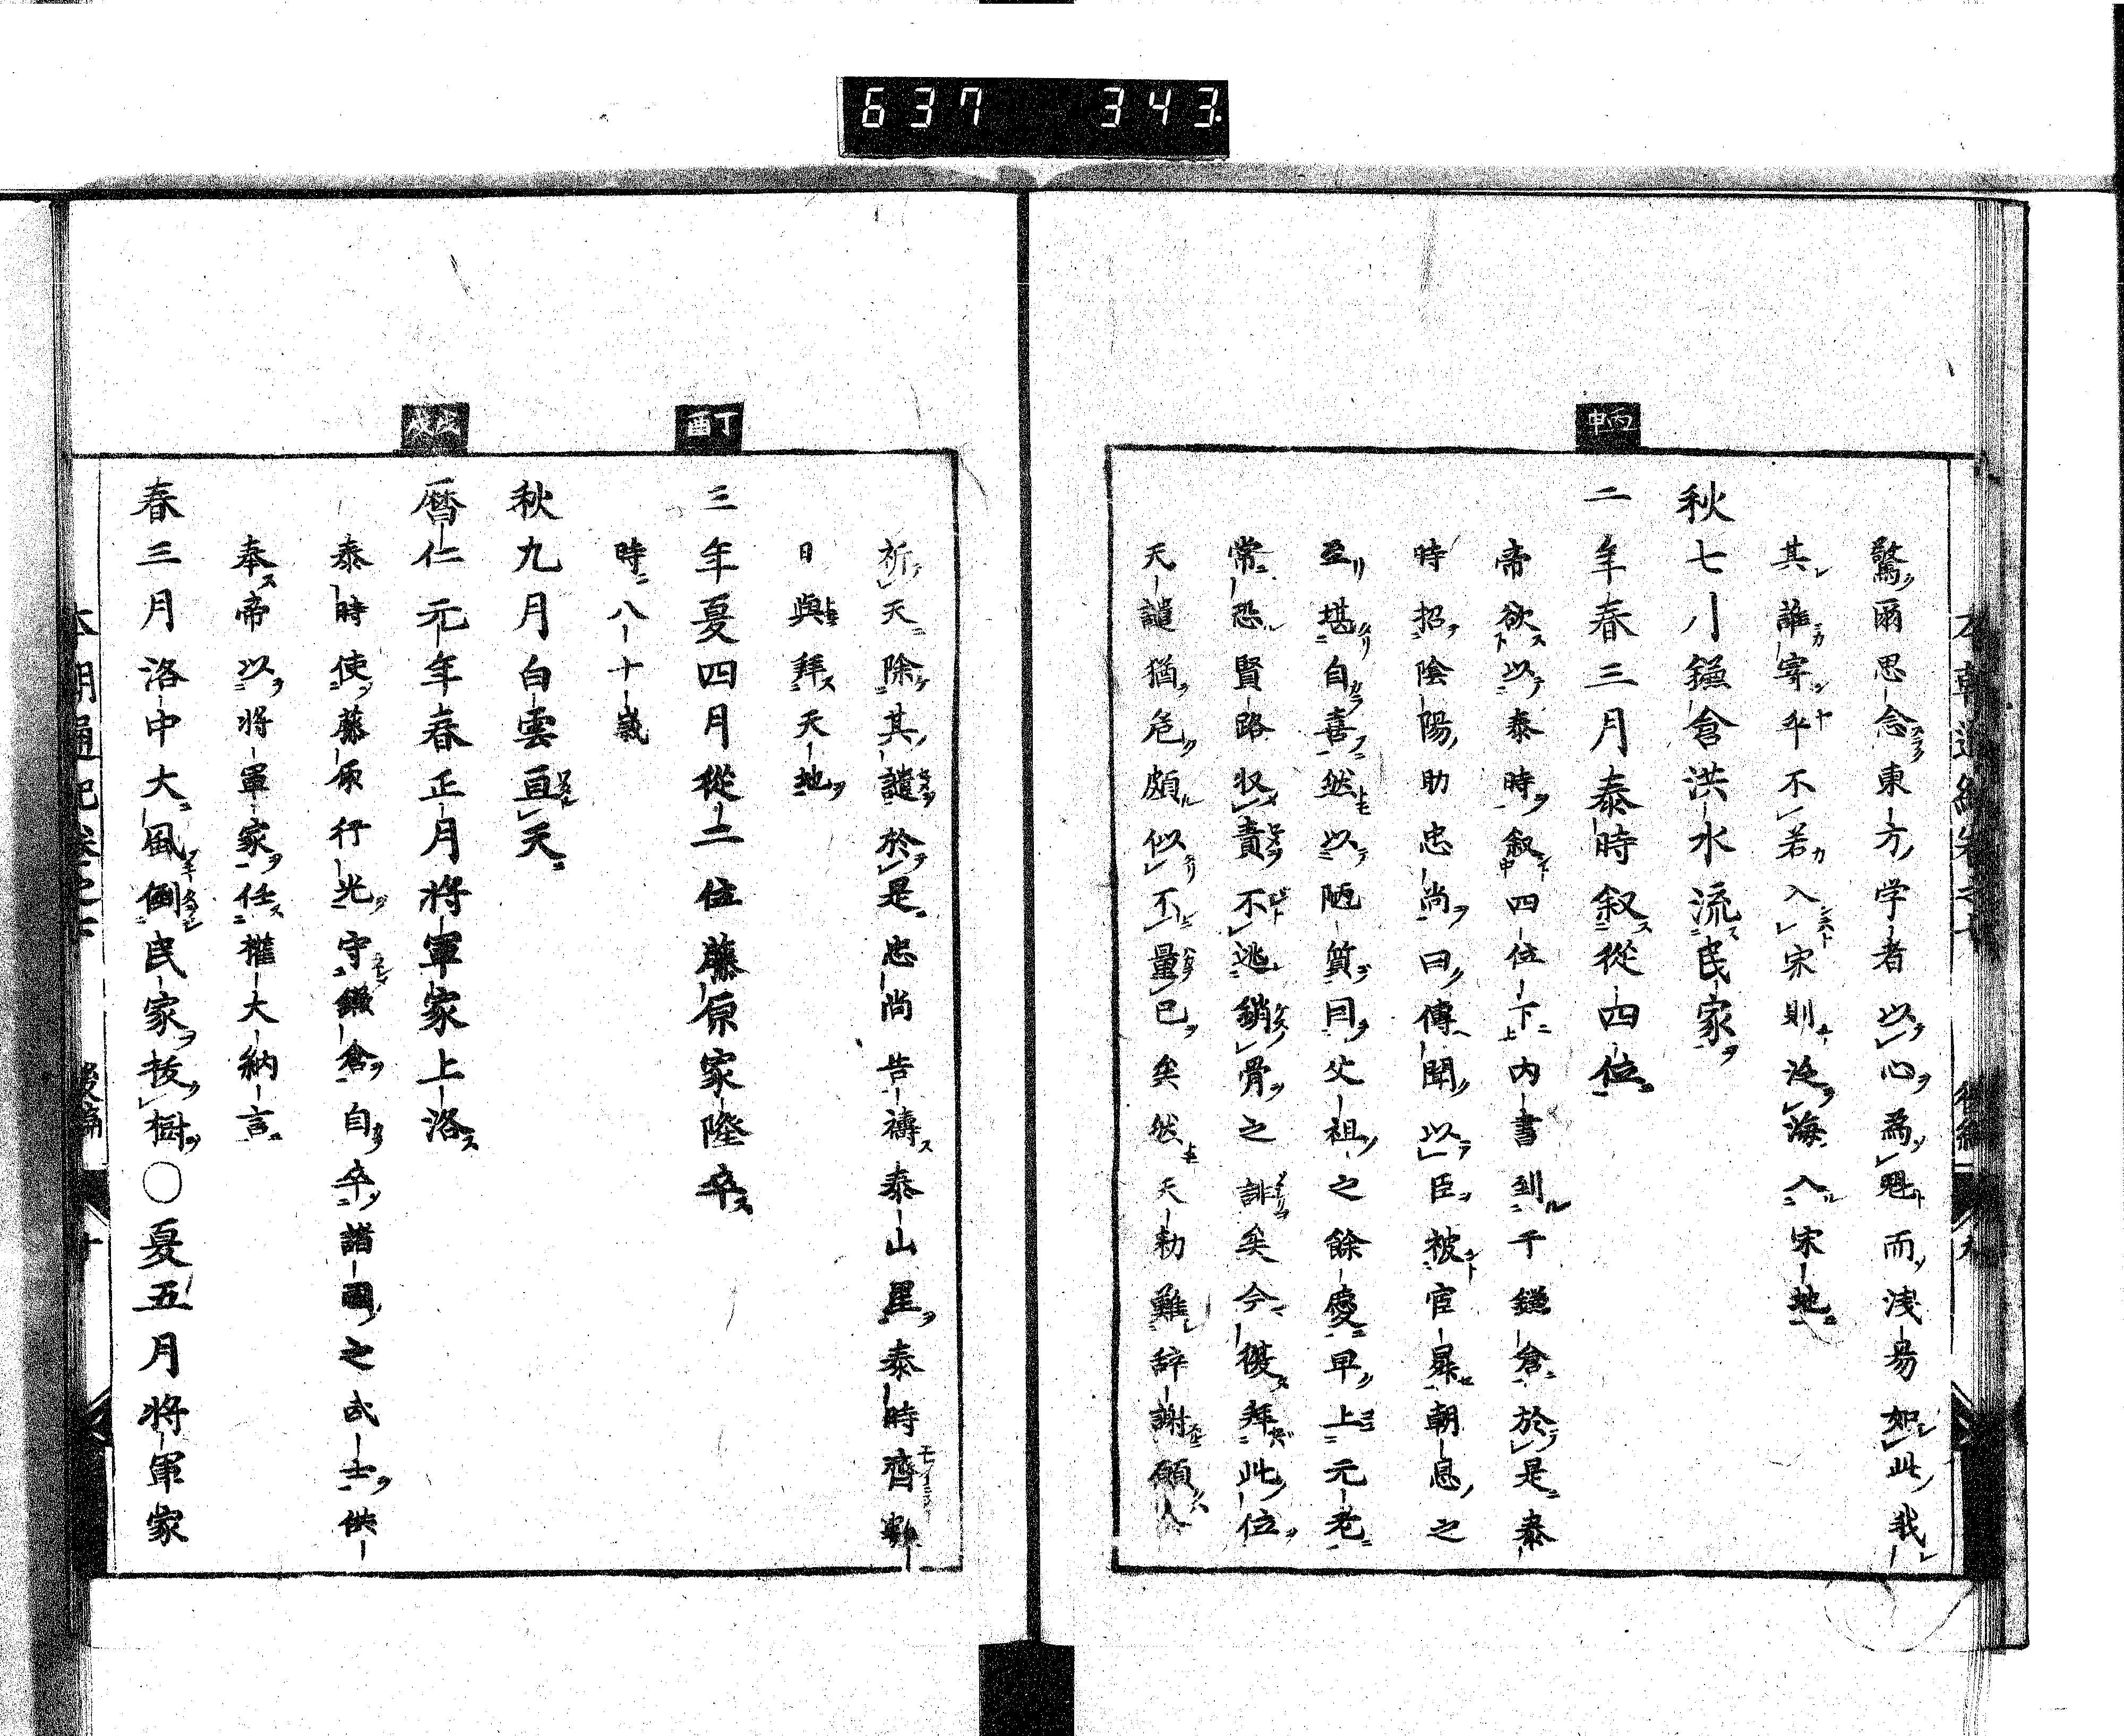 637 343
驚爾思念東方学者以心為魁而浅易如此我
其誰寄乎不若入宋則泛海入宋地
秋七八鎌倉洪水流民家
丙申
二年春三月泰時叙從四位
帝欲以泰時叙四位下内書到于鎌倉於是泰
時招陰陽助忠尚曰傳聞以臣被官暴朝恩之
至堪自喜然以陋質同父祖之餘慶早上元老
常恐賢路収責不逃銷骨之誹矣今優拜此位
天譴猶危頗似不量已矣然天勅難辞謝願人
祈天除其譴於是忠尚告禱泰山星泰時齊
日與拜天地
丁酉
三年夏四月從二位藤原家隆卒
時八十歳
秋九月白雲亘天
戊戌
暦仁元年春正月將軍家上洛
泰時使藤原行光守鎌倉自卒諸國之武士供
奉帝以將軍家任權大納言
春三月洛中大風倒民家拔樹〇夏五月將軍家
本朝通紀巻之七 後編 十